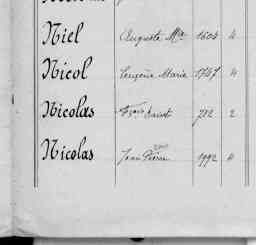 Niel Auguste Mie 1604 4
Nicol Eugène Marie 1747 4
Nicolas 712 2
Nicolas Jean Pierre 1992 4